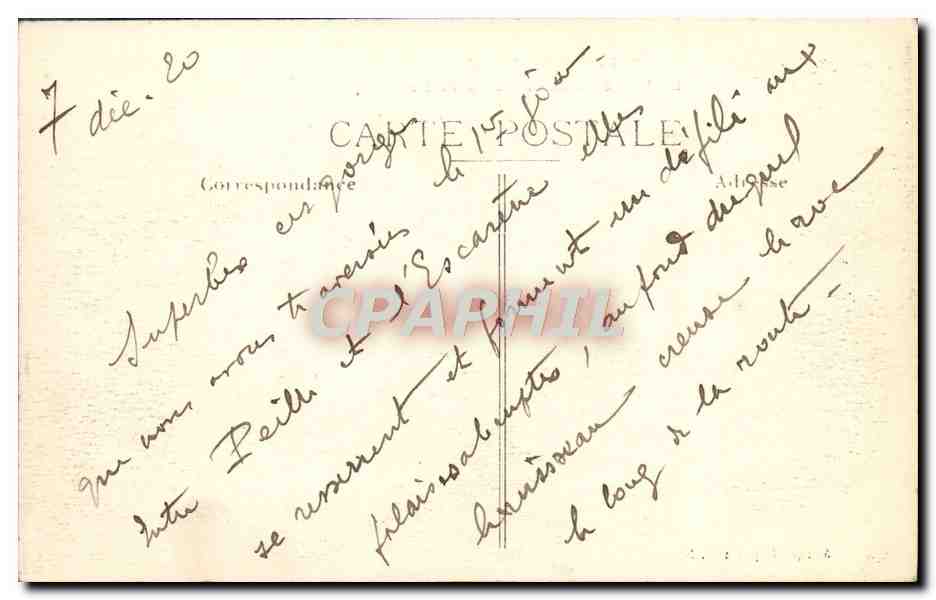 7 déc. 20
CARTE POSTALE
Correspondance
Adresse
Superbes ces gorges
que nous avons traversées le 1er jour -
Entre Peille et l'Escarène elles
se resserrent et forment un défilé aux
falaises abruptes, au fond duquel
le ruisseau creuse le roc
le long de la route -
CPAPHIL